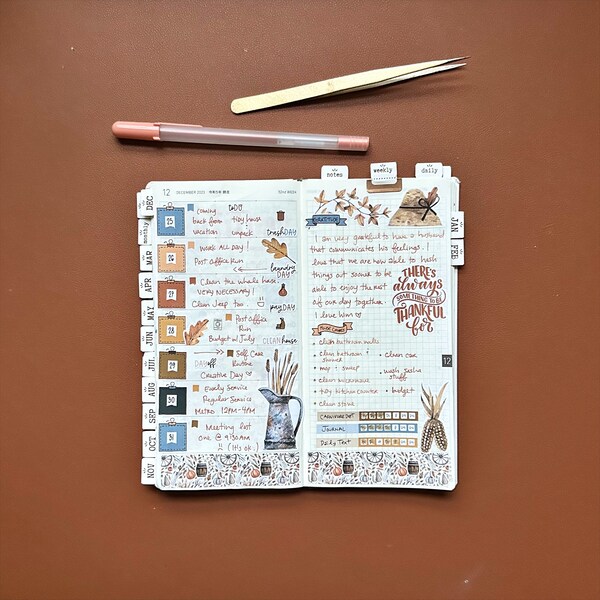 notes
weekly
daily
DEC
monthly
MAR
APR
MAY
JUN
JUL
AUG
SEP
OCT
NOV
JAN
FEB
12
DECEMBER 2023
25
coming
back from
vacation
tiny house
unpack
trashDAY
26
WORK ALL DAY!
Post Office Run
laundry
DAY
27
Clean the whole house.
VERY NECESSARY!
Clean Jeep too
payDAY
28
Post Office
Run
Budget w/ July
CLEANhouse
29
DAYoff
Self Care
Routine
Creative Day
30
Early Service
Regular Service
Metro 12pm-4pm
31
Meeting last
one @ 9:30am
(It's ok!)
GRATITUDE
I am very grateful to have a husband
that communicates his feelings. I
love that we are now able to hash
things out sooner to be
able to enjoy the rest
of our day together.
I love him
THERE'S
always
SOMETHING TO BE
THANKFUL
for
• clean bathroom
• clean bathroom
shower
• clean car
• mop + sweep
• wash
stuff
• clean microwave
• tidy kitchen
• budget
• clean stove
12
CARNIVORE DIET
JOURNAL
Daily Text